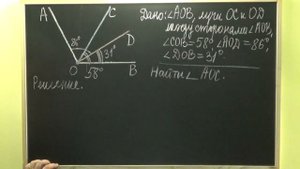 Дано: ∠AOB, лучи OC и OD
между сторонами ∠AOB,
∠COB=58°, ∠AOD=86°,
∠DOB=31°.
Найти ∠AOC.
A
C
D
31°
O
58°
B
Решение.